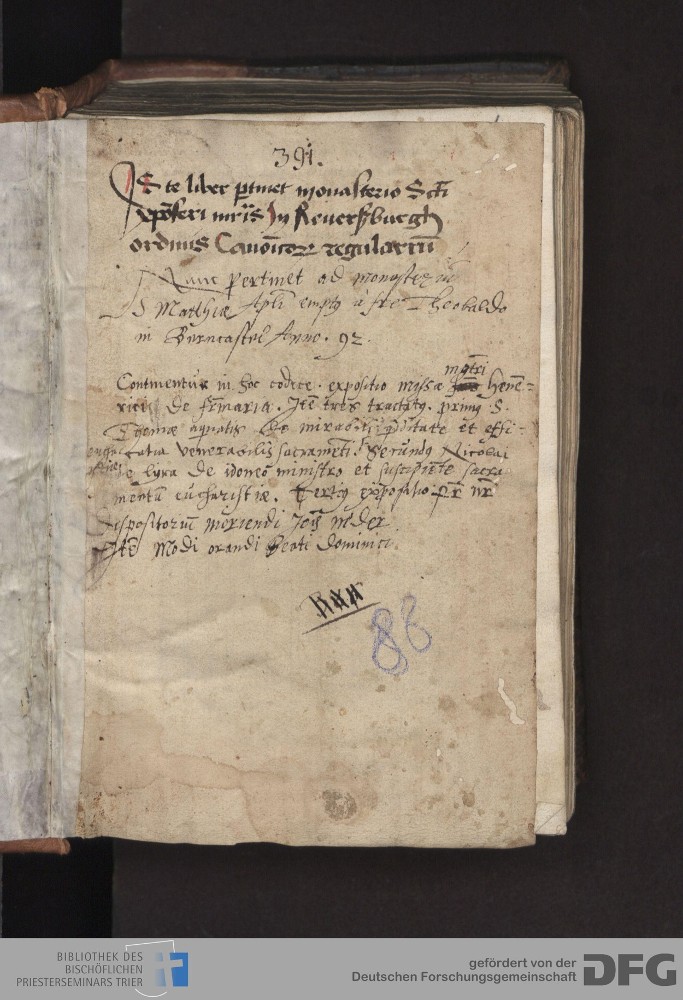 391.
Iste liber ptinet monasterio Scti
xpoferi mris In Reversburgh
ordinis Canoicor regulariu
Nunc pertinet ad monasteriu
S Matthiæ Apli emptq à fre Theobaldo
in Berncastel Anno . 92.
matri
Continentur in hoc codice . expositio missæ Henē=
rici de frimaria . Itē tres tractatq . primq S.
Thomæ aquatis de mirabili qditate et effi-
catia venerabilis sacrameti. Secundq Nicolai
de lyra de idoneo ministro et suscipiēte sacra
mentū eucharistiæ. Tertiq expositio pr nr
Dispositoriū moriendi Jois nider
Itē Modi orandi Beati Dominici
88
BIBLIOTHEK DES
BISCHÖFLICHEN
PRIESTERSEMINARS TRIER
gefördert von der
Deutschen Forschungsgemeinschaft
DFG